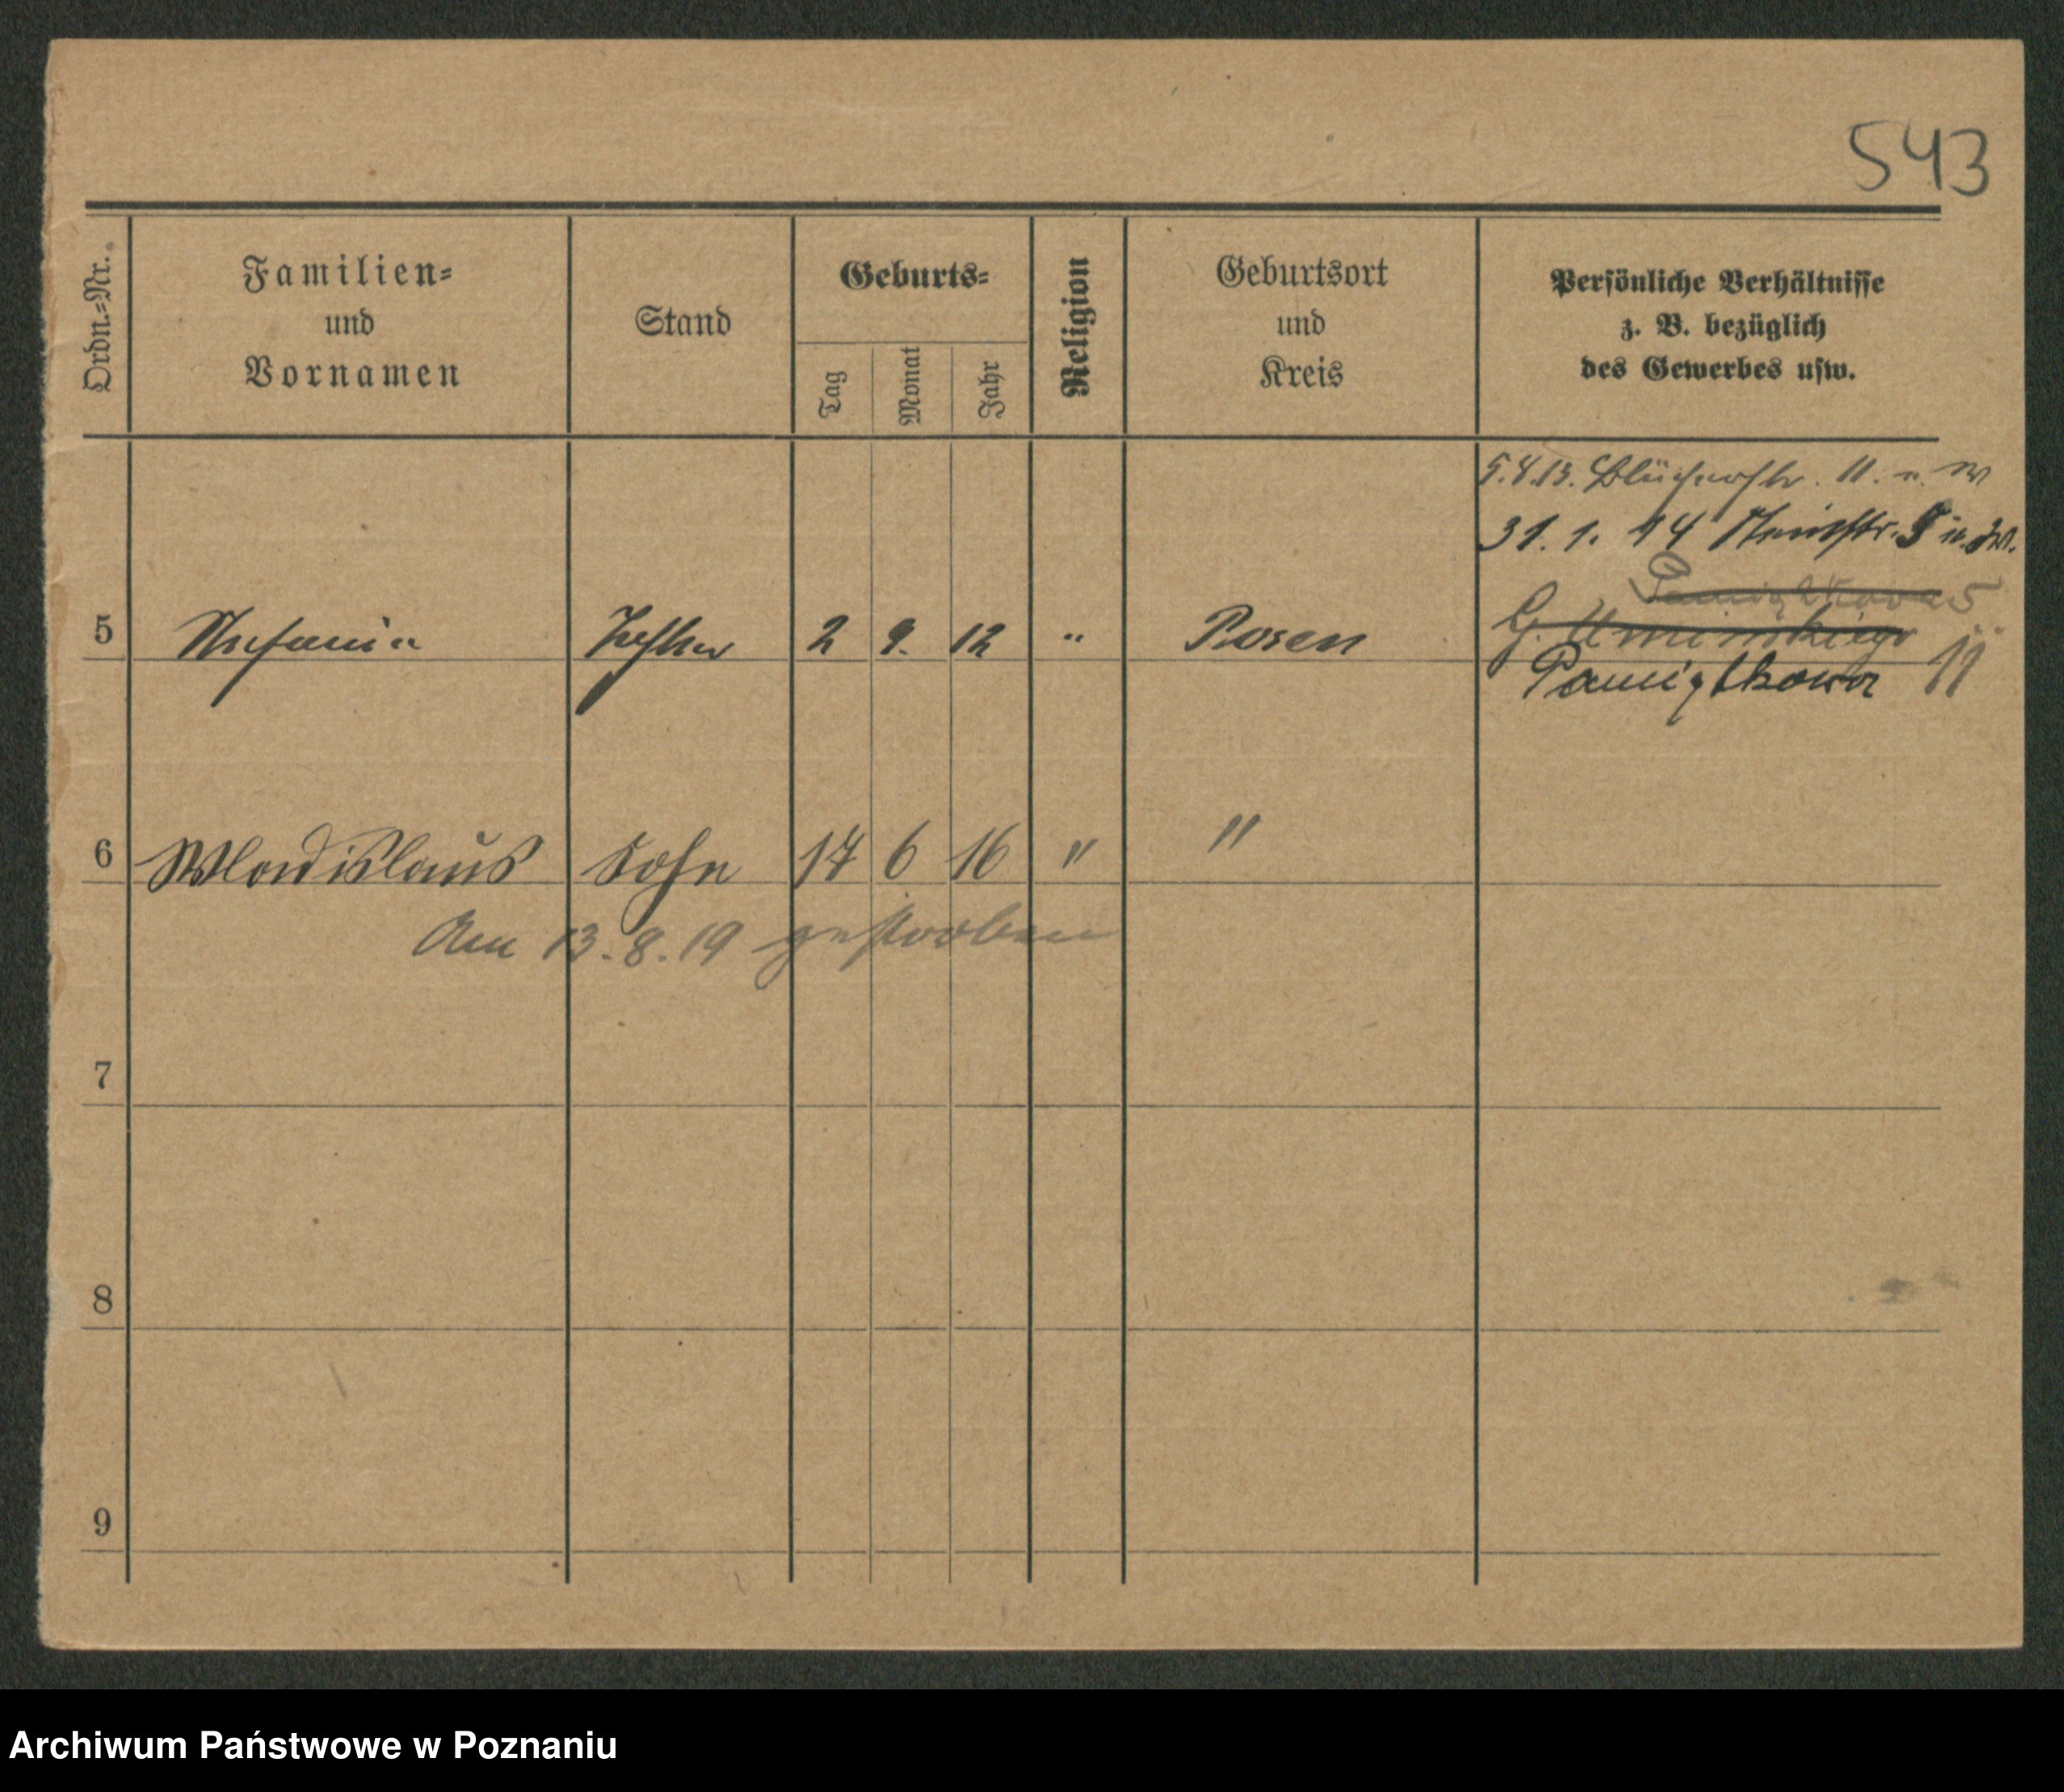 543
Ordn.-Nr.
Familien-
und
Vornamen
Stand
Geburts-
Tag
Monat
Jahr
Religion
Geburtsort
und
Kreis
Persönliche Verhältnisse
z. B. bezüglich
des Gewerbes usw.
5.8.13. Blücherstr. 11. n. W
31. 1. 14
Pamiątkowa 5
G. Umińskiego
5 Stefania Tochter 2 9. 12 " Posen
Pamiątkowa 11
6 Wladislaus Sohn 17 6 16 " "
Am 13.8.19 gestorben
7
8
9
Archiwum Państwowe w Poznaniu